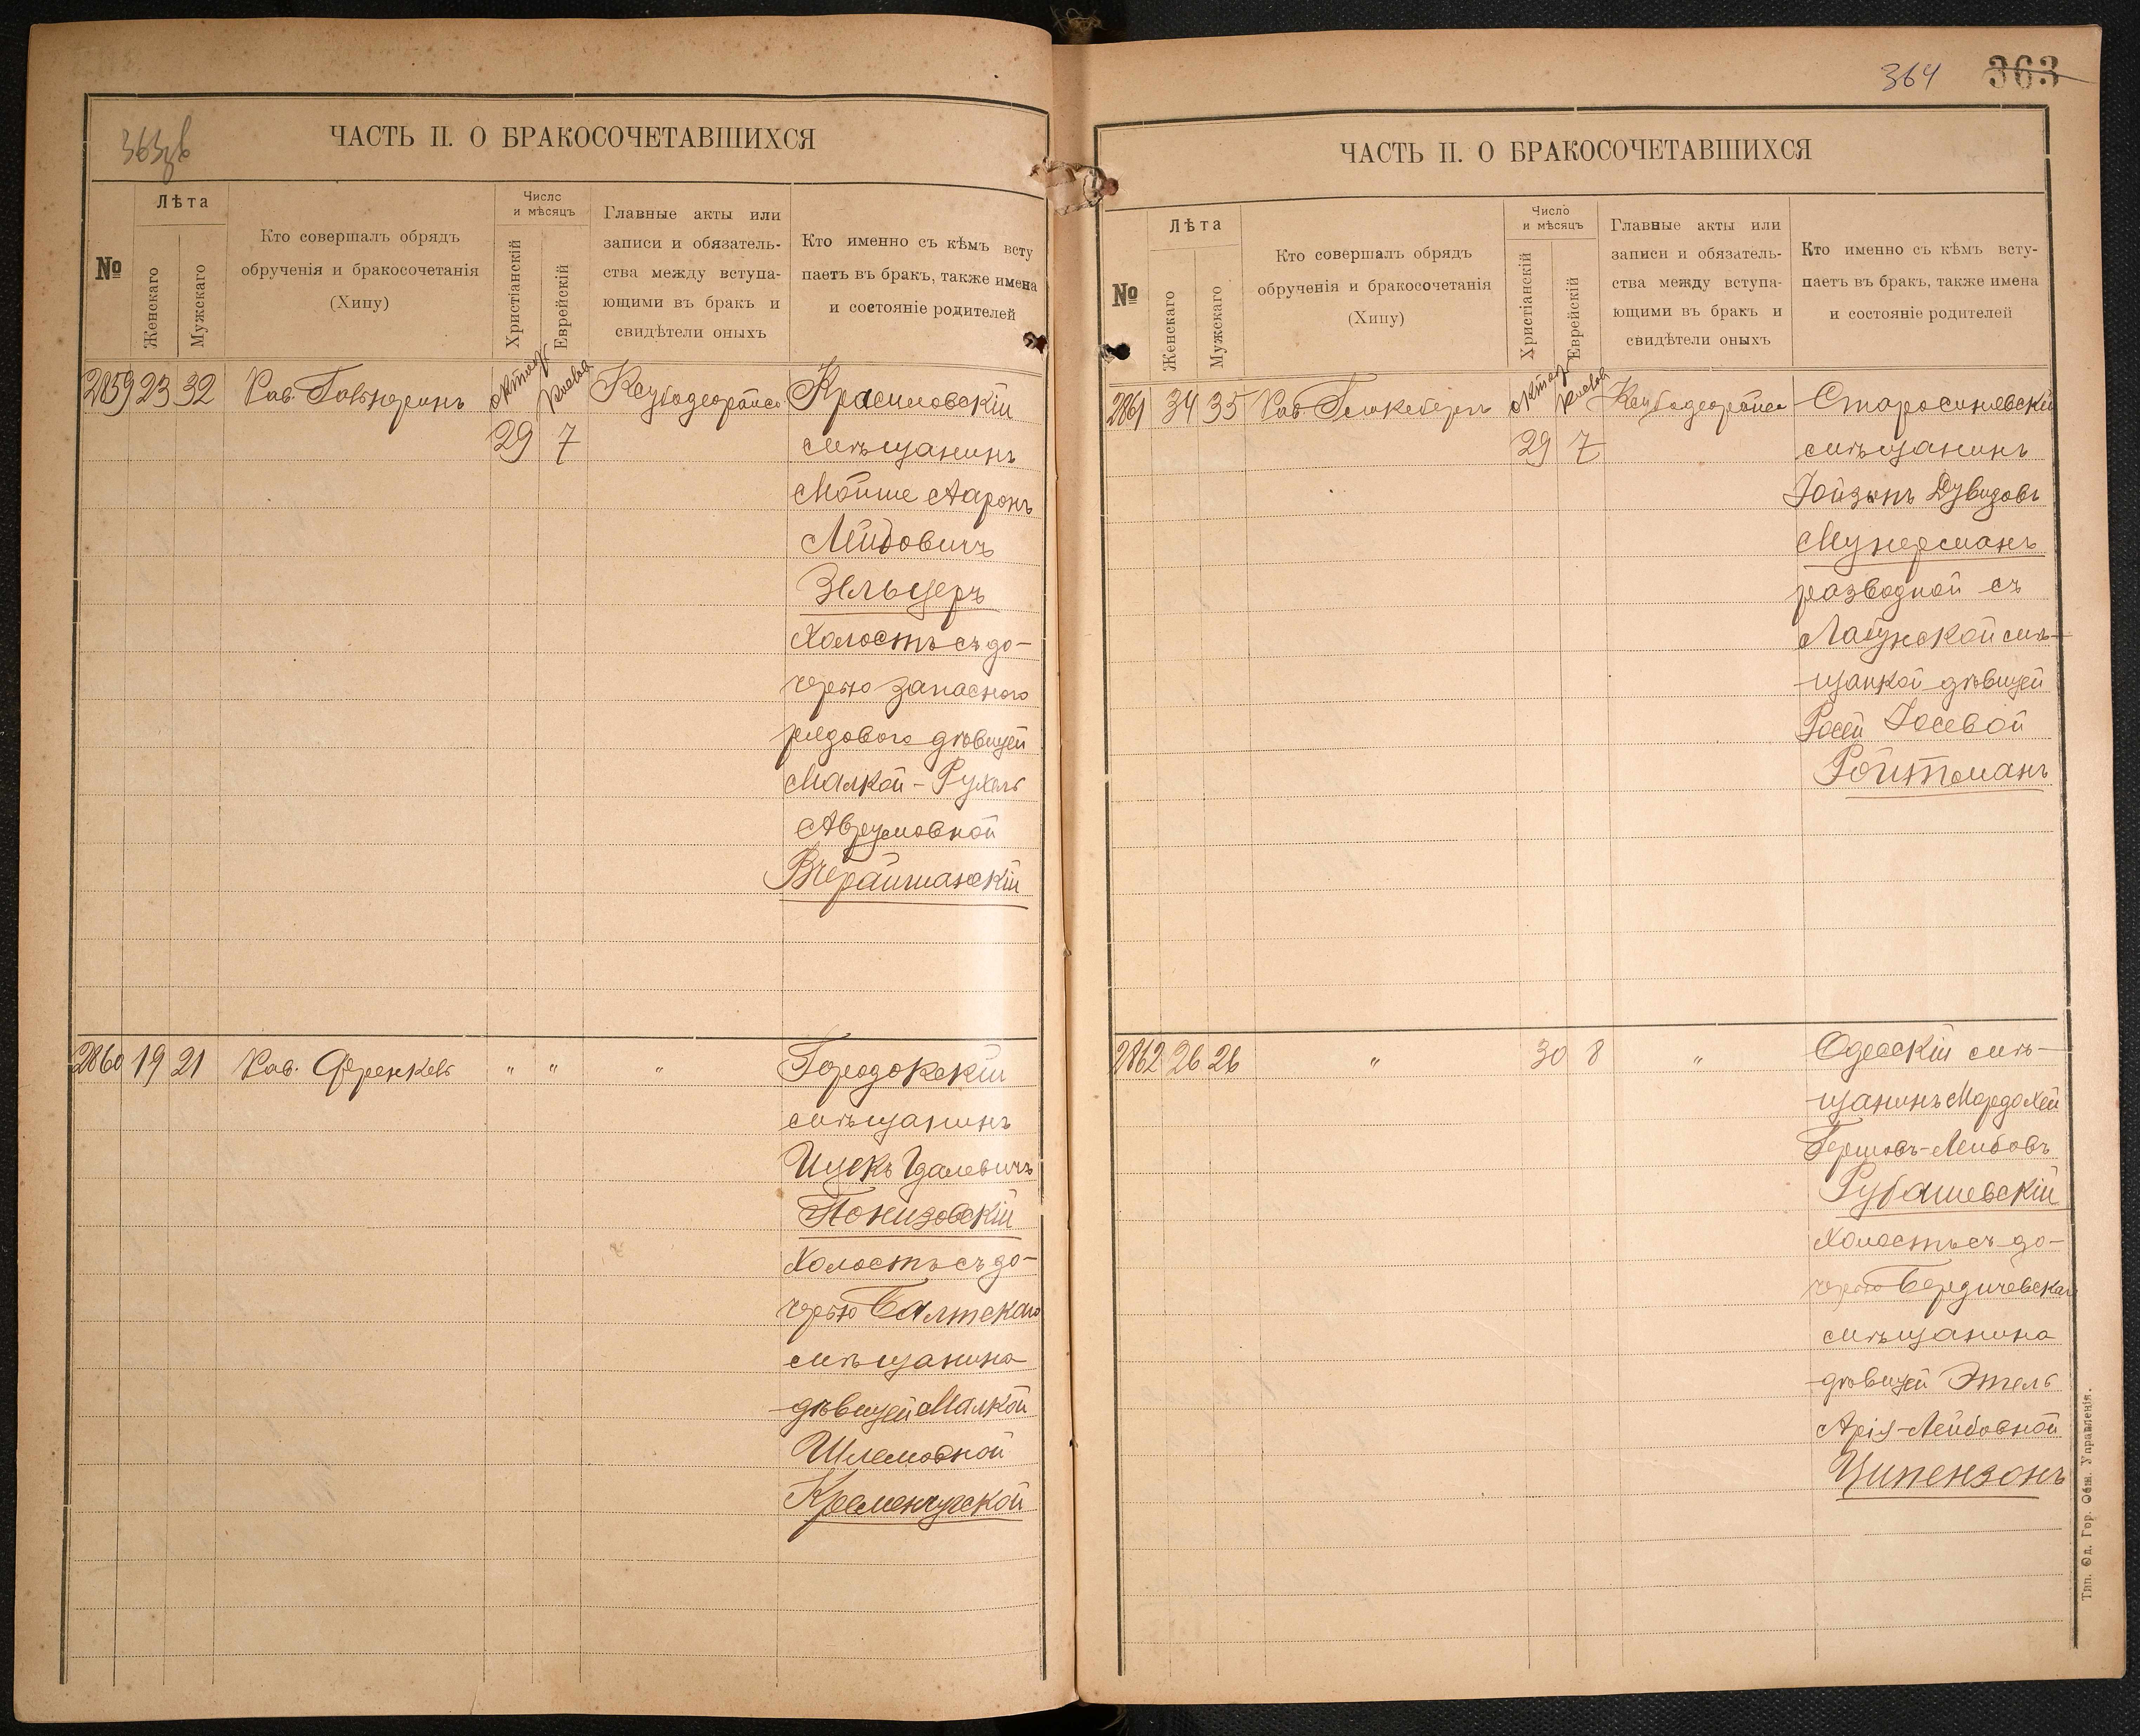 363 об
ЧАСТЬ II. О БРАКОСОЧЕТАВШИХСЯ
№
Лѣта
Женскаго
Мужскаго
Кто совершалъ обрядъ
обрученія и бракосочетанія
(Хипу)
Число
и мѣсяцъ
Христіанскій
Еврейскій
Главные акты или
записи и обязатель-
ства между вступа-
ющими въ бракъ и
свидѣтели оныхъ
Кто именно съ кѣмъ всту
паетъ въ бракъ, также имена
и состояніе родителей
2859 23 32 Рав. октяб
29 7
Красиловскій
мѣщанинъ
Мойше Ааронъ
Лейбовичъ
Зельцеръ
Холостъ съ до-
черью запасного
рядового дѣвицей
Малкой-Рухель
Аврумовной
Вчерайшанскій
2860 19 21 Рав. Френкель " " "
Городокскій
мѣщанинъ
Ицекъ Гдалевичъ
Понизовскій
Холостъ съ до-
черью Балтскаго
мѣщанина
дѣвицей Малкой
Шлемовной
Кременчугской
364 363
ЧАСТЬ II. О БРАКОСОЧЕТАВШИХСЯ
№
Лѣта
Женскаго
Мужскаго
Кто совершалъ обрядъ
обрученія и бракосочетанія
(Хипу)
Число
и мѣсяцъ
Христіанскій
Еврейскій
Главные акты или
записи и обязатель-
ства между вступа-
ющими въ бракъ и
свидѣтели оныхъ
Кто именно съ кѣмъ всту-
паетъ въ бракъ, также имена
и состояніе родителей
2861 34 35 Рав. октяб
29 7
Старосинявскій
мѣщанинъ
Дувидовъ
Мунерманъ
разводной съ
Лабунской мѣ-
щанкой дѣвицей
Росей Iосевой
Ройтманъ
2862 26 26 " 30 8 "
Одесскій мѣ-
щанинъ Мордохей
Гершовъ-Лейбовъ
Рубашевскій
Холостъ съ до-
черью Бердичевскаго
мѣщанина
дѣвицей Этель
Арiя-Лейбовной
Ципензонъ
Тип. Од. Гор. Общ. Управленія.